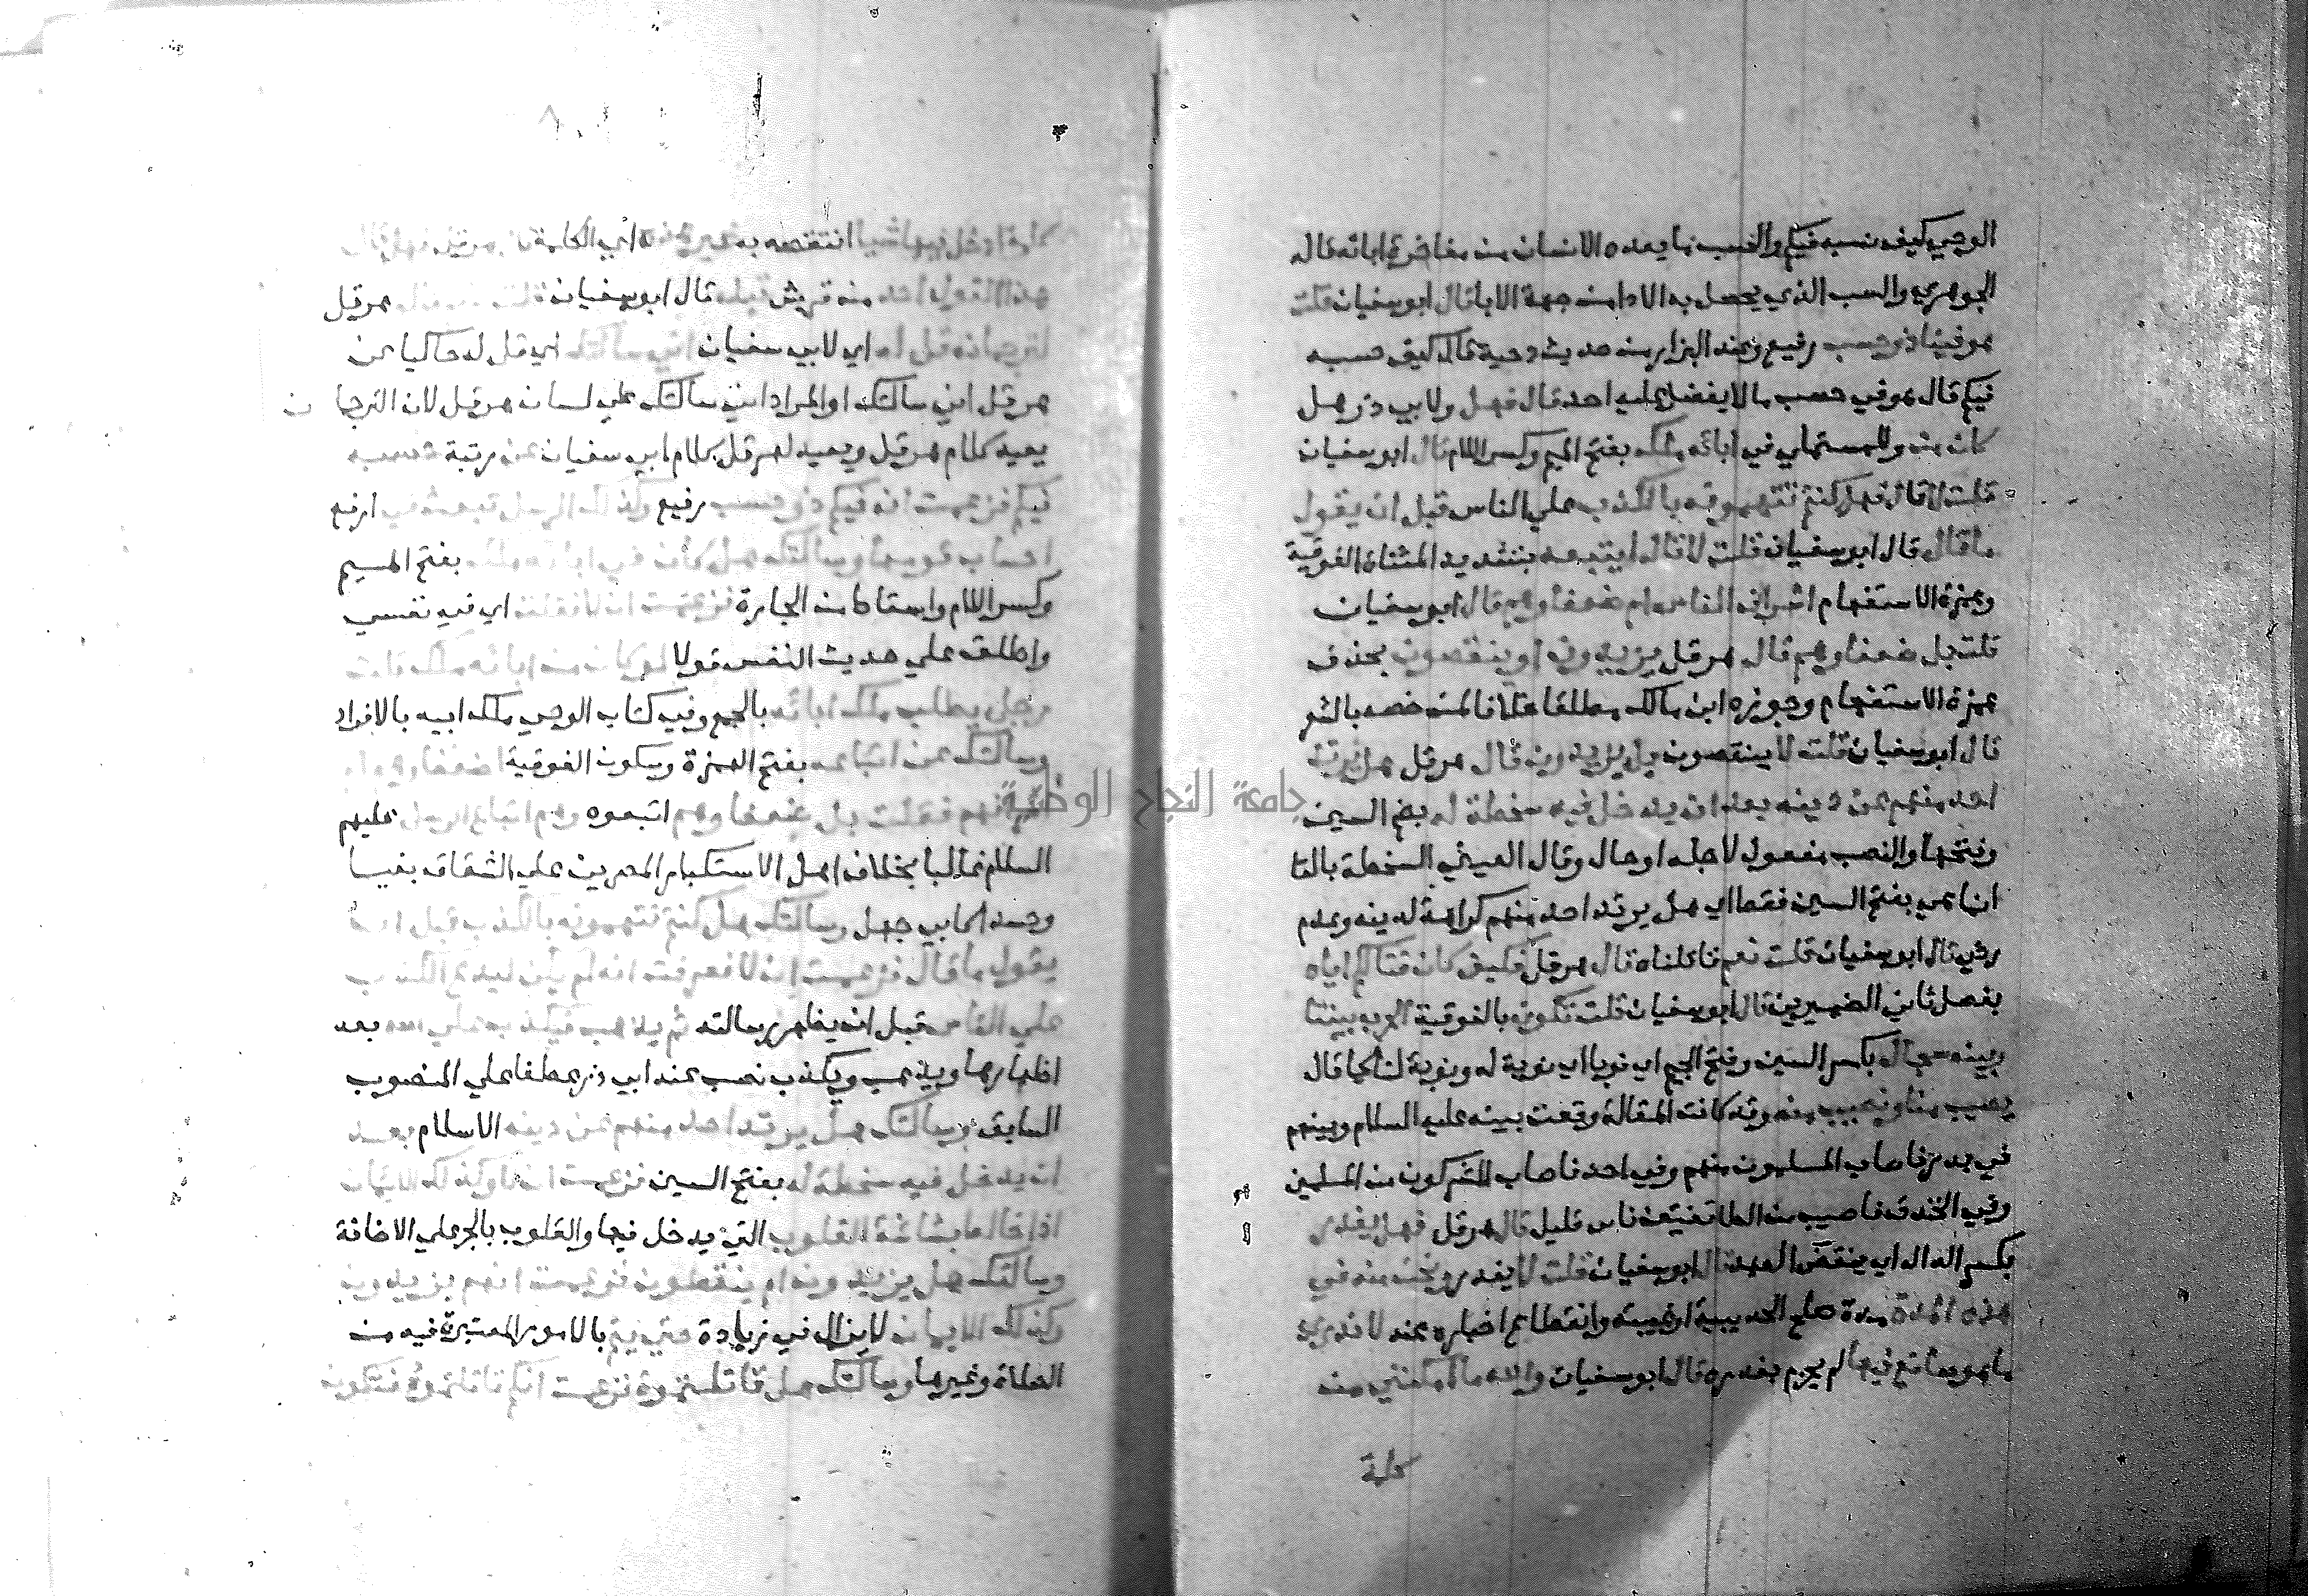 الوحي كيف نسبه فيكم والنسب ما يعده الانسان من مفاخر ابائه قاله
الجوهري والنسب الذي يحصل به الادا من جهة الابا قال ابوسفيان قلت
هو فينا ذو حسب رفيع وعند البزار من حديث دحية قال كيف حسبه
فيكم قال هو في حسب ما لا يفضل عليه احد قال فهل ولابي ذر هل
كان من وللمستملي في ابائه ملك بفتح الميم وكسر اللام قال ابوسفيان
قلت لا قال فهل كنتم تتهمونه بالكذب علي الناس قبل ان يقول
ما قال قال ابوسفيان قلت لا قال ايتبعه بتشديد المثناة الفوقية
وهمزة الاستفهام اشراف الناس ام ضعفاوهم قال ابوسفيان
قلت بل ضعفاوهم قال هرقل يزيدون او ينقصون بحذف
همزة الاستفهام وجوزه ابن مالك مطلقا خلافا لمن خصه بالشعر
قال ابوسفيان قلت لا ينقصون بل يزيدون قال هرقل هل يرتد
احد منهم عن دينه بعد ان يدخل فيه سخطة له بضم السين
وفتحها والنصب مفعول لاجله او حال وقال العيني السخطة بالتا
انما هي بفتح السين فقط اي هل يرتد احد منهم كراهة لدينه وعدم
رضي قال ابوسفيان قلت نعم قاتلناه قال هرقل فكيف كان قتالكم اياه
بفصل ثاني الضميرين قال ابوسفيان قلت تكون بالفوقية الحرب بيننا
وبينه سجال بكسر السين وفتح الجيم اي نوبا اي نوبة له ونوبة لنا كما قال
يصيب منا ونصيب منه وقد كانت المقالة وقعت بينه عليه السلام وبينهم
في بدر فاصاب المسلمون منهم وفي احد فاصاب المشركون من المسلمين
وفي الخندق فاصيب من الطائفتين ناس قليل قال هرقل فهل يغدر
بكسر الدال اي ينقض العهد قال ابوسفيان قلت لا يغدر ونحن منه في
هذه المدة مدة صلح الحديبية او غيبته وانقطاع اخباره عنه لا ندري
ما هو صانع فيها لم يجزم بغدره قال ابوسفيان والله ما امكنني من
كلمة
كلمة ادخل فيها شيا انتقصه به غير هذه اي الكلمة
هذا القول احد من قريش قبله قال ابوسفيان هرقل
لترجمانه قل له اي لابي سفيان اي قل له حاكيا عن
هرقل اني سالتك او المراد اني سالتك علي لسان هرقل لان الترجمان
يعيد كلام هرقل ويعيد لهرقل كلام ابي سفيان عن مرتبة نسبه
فيكم فزعمت انه فيكم ذو حسب رفيع وكذلك الرسل تبعث في ارفع
احساب قومها وسالتك هل كان في ابائه ملك بفتح الميم
وكسر اللام واسقاط من الجارة فزعمت ان لا فقلت اي في نفسي
واطلق علي حديث النفس قولا
رجل يطلب ملك ابائه بالجمع وفي كتاب الوحي ملك ابيه بالافراد
وسالتك عن اتباعه بفتح الهمزة وسكون الفوقية اضعفاوهم ام
اشرافهم فقلت بل ضعفاوهم اتبعوه وهم اتباع الرسل عليهم
السلام غالبا بخلاف اهل الاستكبار المصرين علي الشقاق بغيا
وحسدا كابي جهل وسالتك هل كنتم تتهمونه بالكذب قبل ان
يقول ما قال فزعمت ان لا فعرفت انه لم يكن ليدع الكذب
علي الناس قبل ان يظهر رسالته ثم يذهب فيكذب علي الله بعد
اظهارها ويذهب ويكذب نصب عند ابي ذر عطفا علي المنصوب
السابق وسالتك هل يرتد احد منهم عن دينه الاسلام بعد
ان يدخل فيه سخطة له بفتح السين فزعمت ان لا وكذلك الايمان
اذا خالط بشاشة القلوب التي يدخل فيها والقلوب بالجر علي الاضافة
وسالتك هل يزيدون ام ينقصون فزعمت انهم يزيدون
وكذلك الايمان لا يزال في زيادة حتي يتم بالامور المعتبرة فيه من
الصلاة وغيرها وسالتك هل قاتلتموه فزعمت انكم قاتلتموه فتكون
جامعة النجاح الوطنية